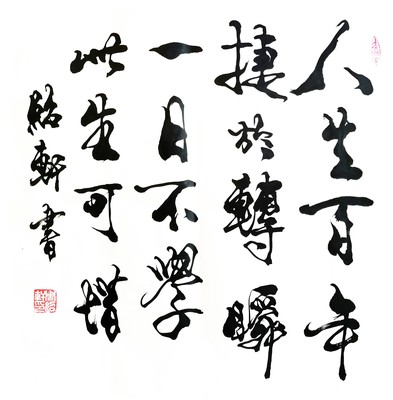 人生百年
捷於轉瞬
一日不學
此生可惜
軒書